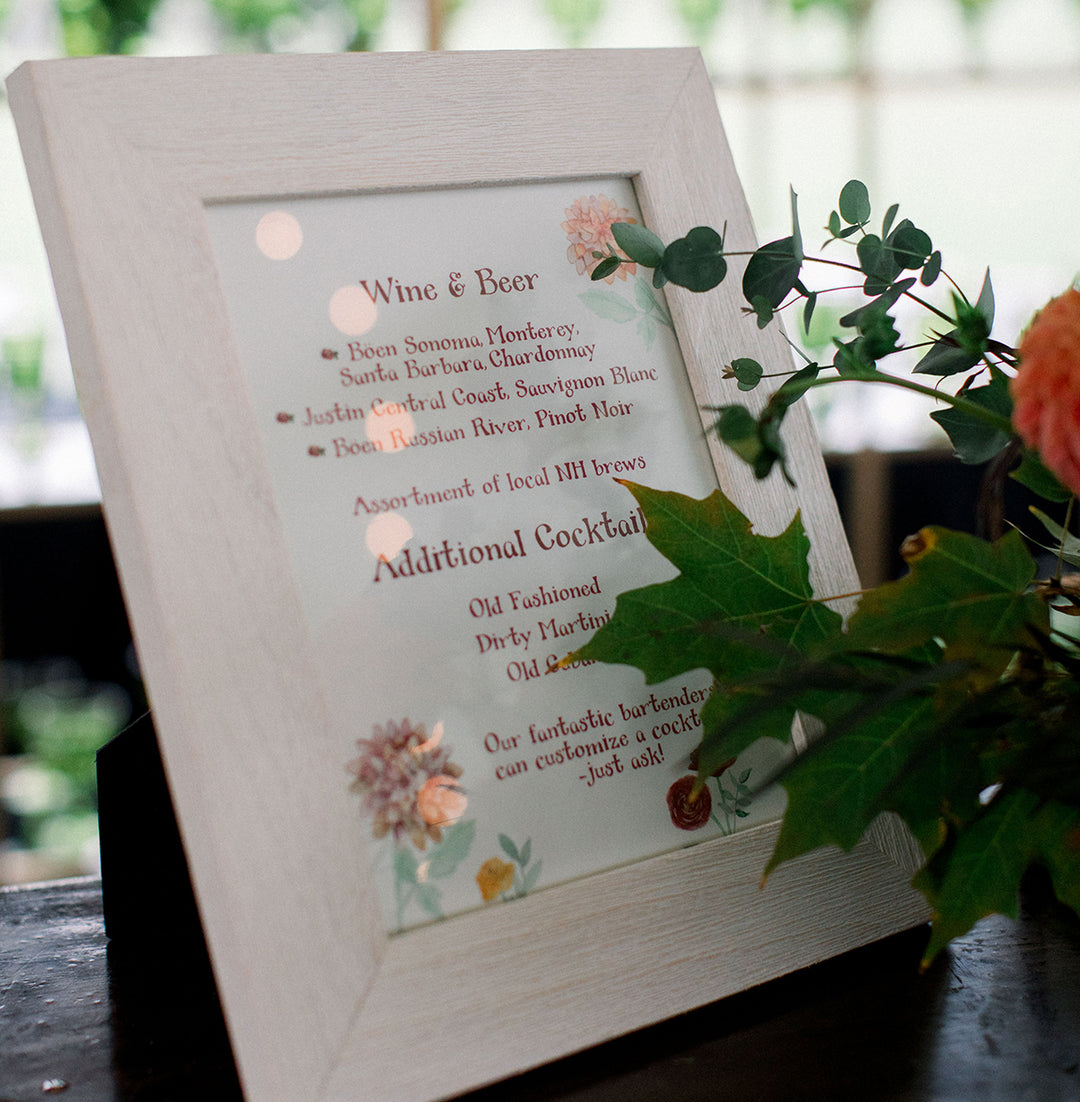 Wine & Beer
Böen Sonoma, Monterey,
Santa Barbara, Chardonnay
Justin Central Coast, Sauvignon Blanc
Böen Russian River, Pinot Noir
Assortment of local NH brews
Additional Cocktail
Old Fashioned
Dirty Martini
Old
Our fantastic bartenders
can customize a
-just ask!